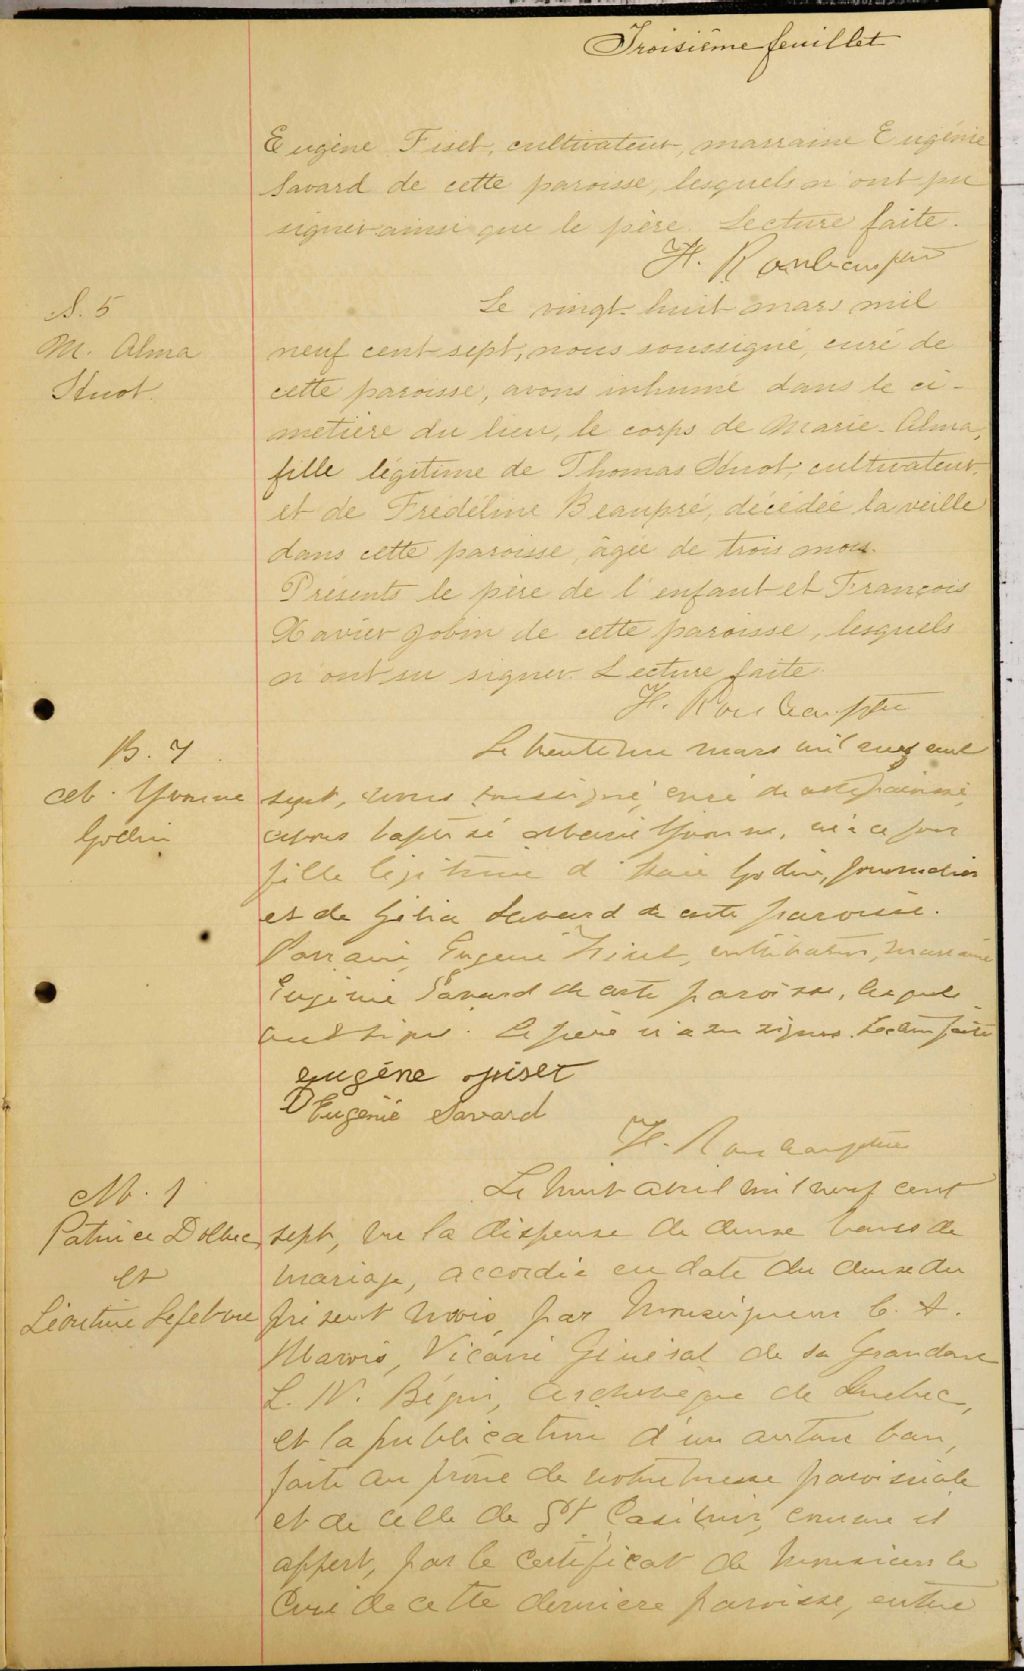 Troisième feuillet
Eugène Fiset, cultivateur, marraine Eugénie
Savard de cette paroisse, lesquels n'ont pu
signer ainsi que le père. Lecture faite.
S. 5
M. Alma
Huot
Le vingt-huit mars mil
neuf cent sept, nous soussigné, curé de
cette paroisse, avons inhumé dans le ci-
metière du lieu, le corps de Marie-Alma,
fille légitime de Thomas Huot, cultivateur
et de Frédéline Beaupré, décédée la veille
dans cette paroisse, âgée de trois mois.
Présents le père de l'enfant et François
Xavier Gobin de cette paroisse, lesquels
n'ont su signer. Lecture faite.
B. 7
M. Yvonne
Godin
Le trente un mars mil neuf cent
sept, nous soussigné, curé de cette paroisse,
avons baptisé Marie Yvonne, née ce jour
fille légitime d'Isaïe Godin, journalier
et de Gélia Savard de cette paroisse.
Parrain, Eugène Fiset, cultivateur, marraine
Eugénie Savard de cette paroisse, lesquels
ont signé. Le père n'a su signer. Lecture faite
eugène fiset
Eugénie Savard
M. 1
Patrice Dolbec
et
Léontine Lefebvre
Le huit avril mil neuf cent
sept, vu la dispense de deux bans de
mariage, accordée en date du deux du
présent mois, par Monseigneur C. A.
Marois, Vicaire Général de sa Grandeur
L. N. Bégin, Archevêque de Québec,
et la publication d'un autre ban,
faite au prône de notre messe paroissiale
et de celle de St Casimir, comme il
appert, par le certificat de Monsieur le
Curé de cette dernière paroisse, entre